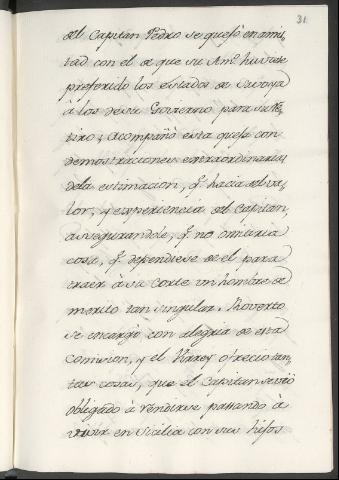 31
del Capitan Pedro se quejó en amis
tad con el de que su Am.º huviese
preferido los estados de Savoya
à los de su Govierno para su Re
tiro; acompañò esta quexa con
demostraciones extraordinarias
de la estimacion, q.e hacia del va
lor, y experiencia del Capitan,
asegurandole, q.e no omitiria
cosa, q.e dependiese de el para
traer à su corte un hombre de
merito tan singular. Roverto
se encargò con alegria de esta
comision, y el Virrey ofrecio tan
tas cosas, que el Capitan se viò
obligado à rendirse passando à
vivir en Sicilia con sus hijos